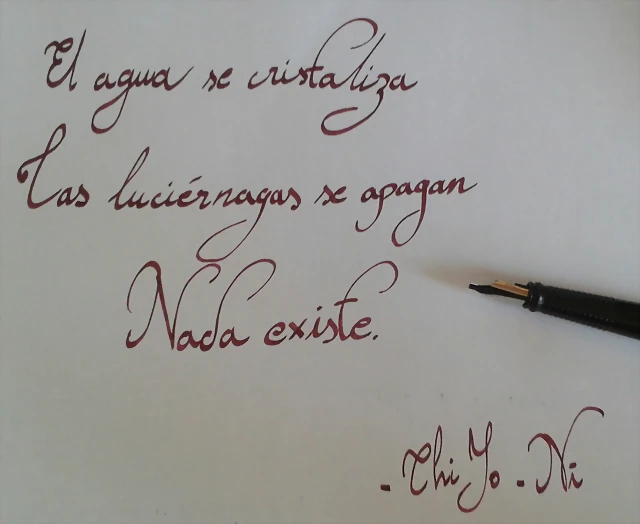 El agua se cristaliza
Las luciérnagas se apagan
Nada existe.
- Chi Yo - Ni